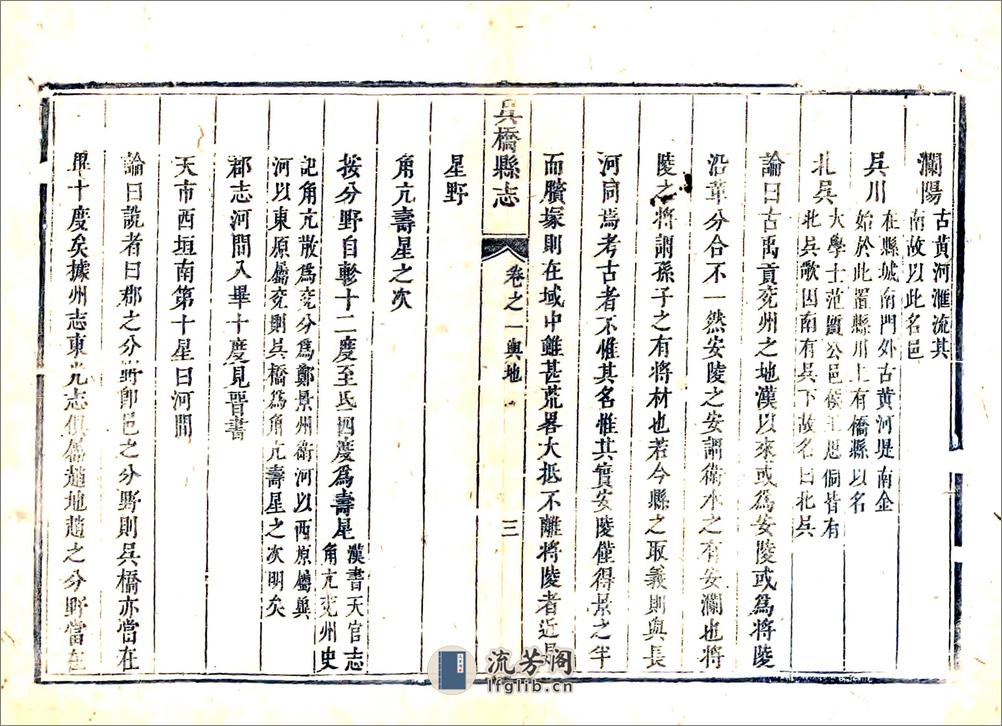 瀾陽古黃河滙流其
南故以此名邑
吳川在縣城南門外古黃河堤南金
始於此置縣川上有橋縣以名
北吳大學士范質公邑侯王思侗皆有
北吳歌因南有吳下故名曰北吳
論曰古禹貢兗州之地漢以來或爲安陵或爲將陵
沿革分合不一然安陵之安謂衛水之有安瀾也將
陵之將謂孫子之有將材也若今縣之取義則與長
河同焉考古者不惟其名惟其實安陵僅得景之半
而臏塚則在域中雖甚荒畧大抵不離將陵者近是
吳橋縣志
卷之一輿地
三
星野
角亢壽星之次
按分野自軫十二度至氐四度爲壽星漢書天官志
角亢兗州史
記角亢散爲兗分爲鄭景州衛河以西原屬冀
河以東原屬兗則吳橋爲角亢壽星之次明矣
郡志河間入畢十度見晉書
天市西垣南第十星曰河間
論曰說者曰郡之分野卽邑之分野則吳橋亦當在
畢十度矣據州志東光志俱屬趙地趙之分野當在
流芳阁
lfglib.cn